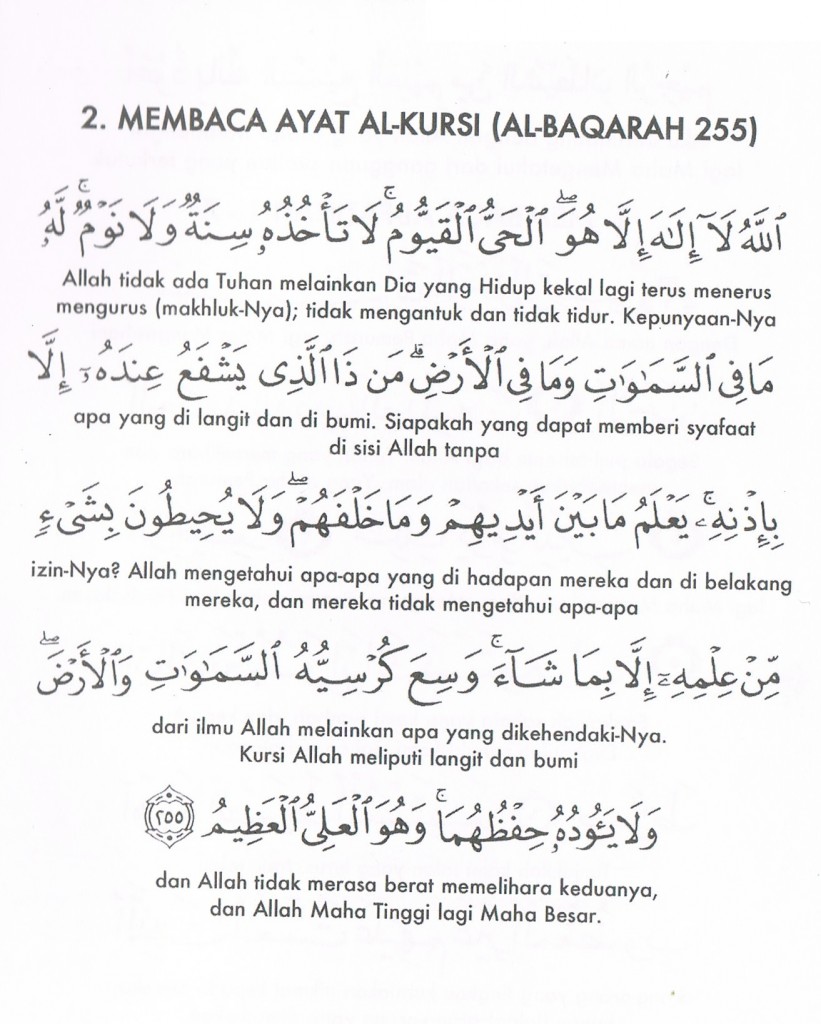 2. MEMBACA AYAT AL-KURSI (AL-BAQARAH 255)
ٱللَّهُ لَآ إِلَٰهَ إِلَّا هُوَ ۖ ٱلْحَىُّ ٱلْقَيُّومُ ۚ لَا تَأْخُذُهُۥ سِنَةٌ وَلَا نَوْمٌ ۚ لَّهُۥ
Allah tidak ada Tuhan melainkan Dia yang Hidup kekal lagi terus menerus
mengurus (makhluk-Nya); tidak mengantuk dan tidak tidur. Kepunyaan-Nya
مَا فِى ٱلسَّمَٰوَٰتِ وَمَا فِى ٱلْأَرْضِ ۗ مَن ذَا ٱلَّذِى يَشْفَعُ عِندَهُۥٓ إِلَّا
apa yang di langit dan di bumi. Siapakah yang dapat memberi syafaat
di sisi Allah tanpa
بِإِذْنِهِۦ ۚ يَعْلَمُ مَا بَيْنَ أَيْدِيهِمْ وَمَا خَلْفَهُمْ ۖ وَلَا يُحِيطُونَ بِشَىْءٍ
izin-Nya? Allah mengetahui apa-apa yang di hadapan mereka dan di belakang
mereka, dan mereka tidak mengetahui apa-apa
مِّنْ عِلْمِهِۦٓ إِلَّا بِمَا شَآءَ ۚ وَسِعَ كُرْسِيُّهُ ٱلسَّمَٰوَٰتِ وَٱلْأَرْضَ ۖ
dari ilmu Allah melainkan apa yang dikehendaki-Nya.
Kursi Allah meliputi langit dan bumi
وَلَا يَـُٔودُهُۥ حِفْظُهُمَا ۚ وَهُوَ ٱلْعَلِىُّ ٱلْعَظِيمُ ٢٥٥
dan Allah tidak merasa berat memelihara keduanya,
dan Allah Maha Tinggi lagi Maha Besar.